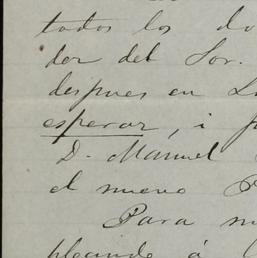 todos los do
dor del Sor.
despues en L
esperar, i f
D. Manuel
el nuevo P
Para m
pleando á l